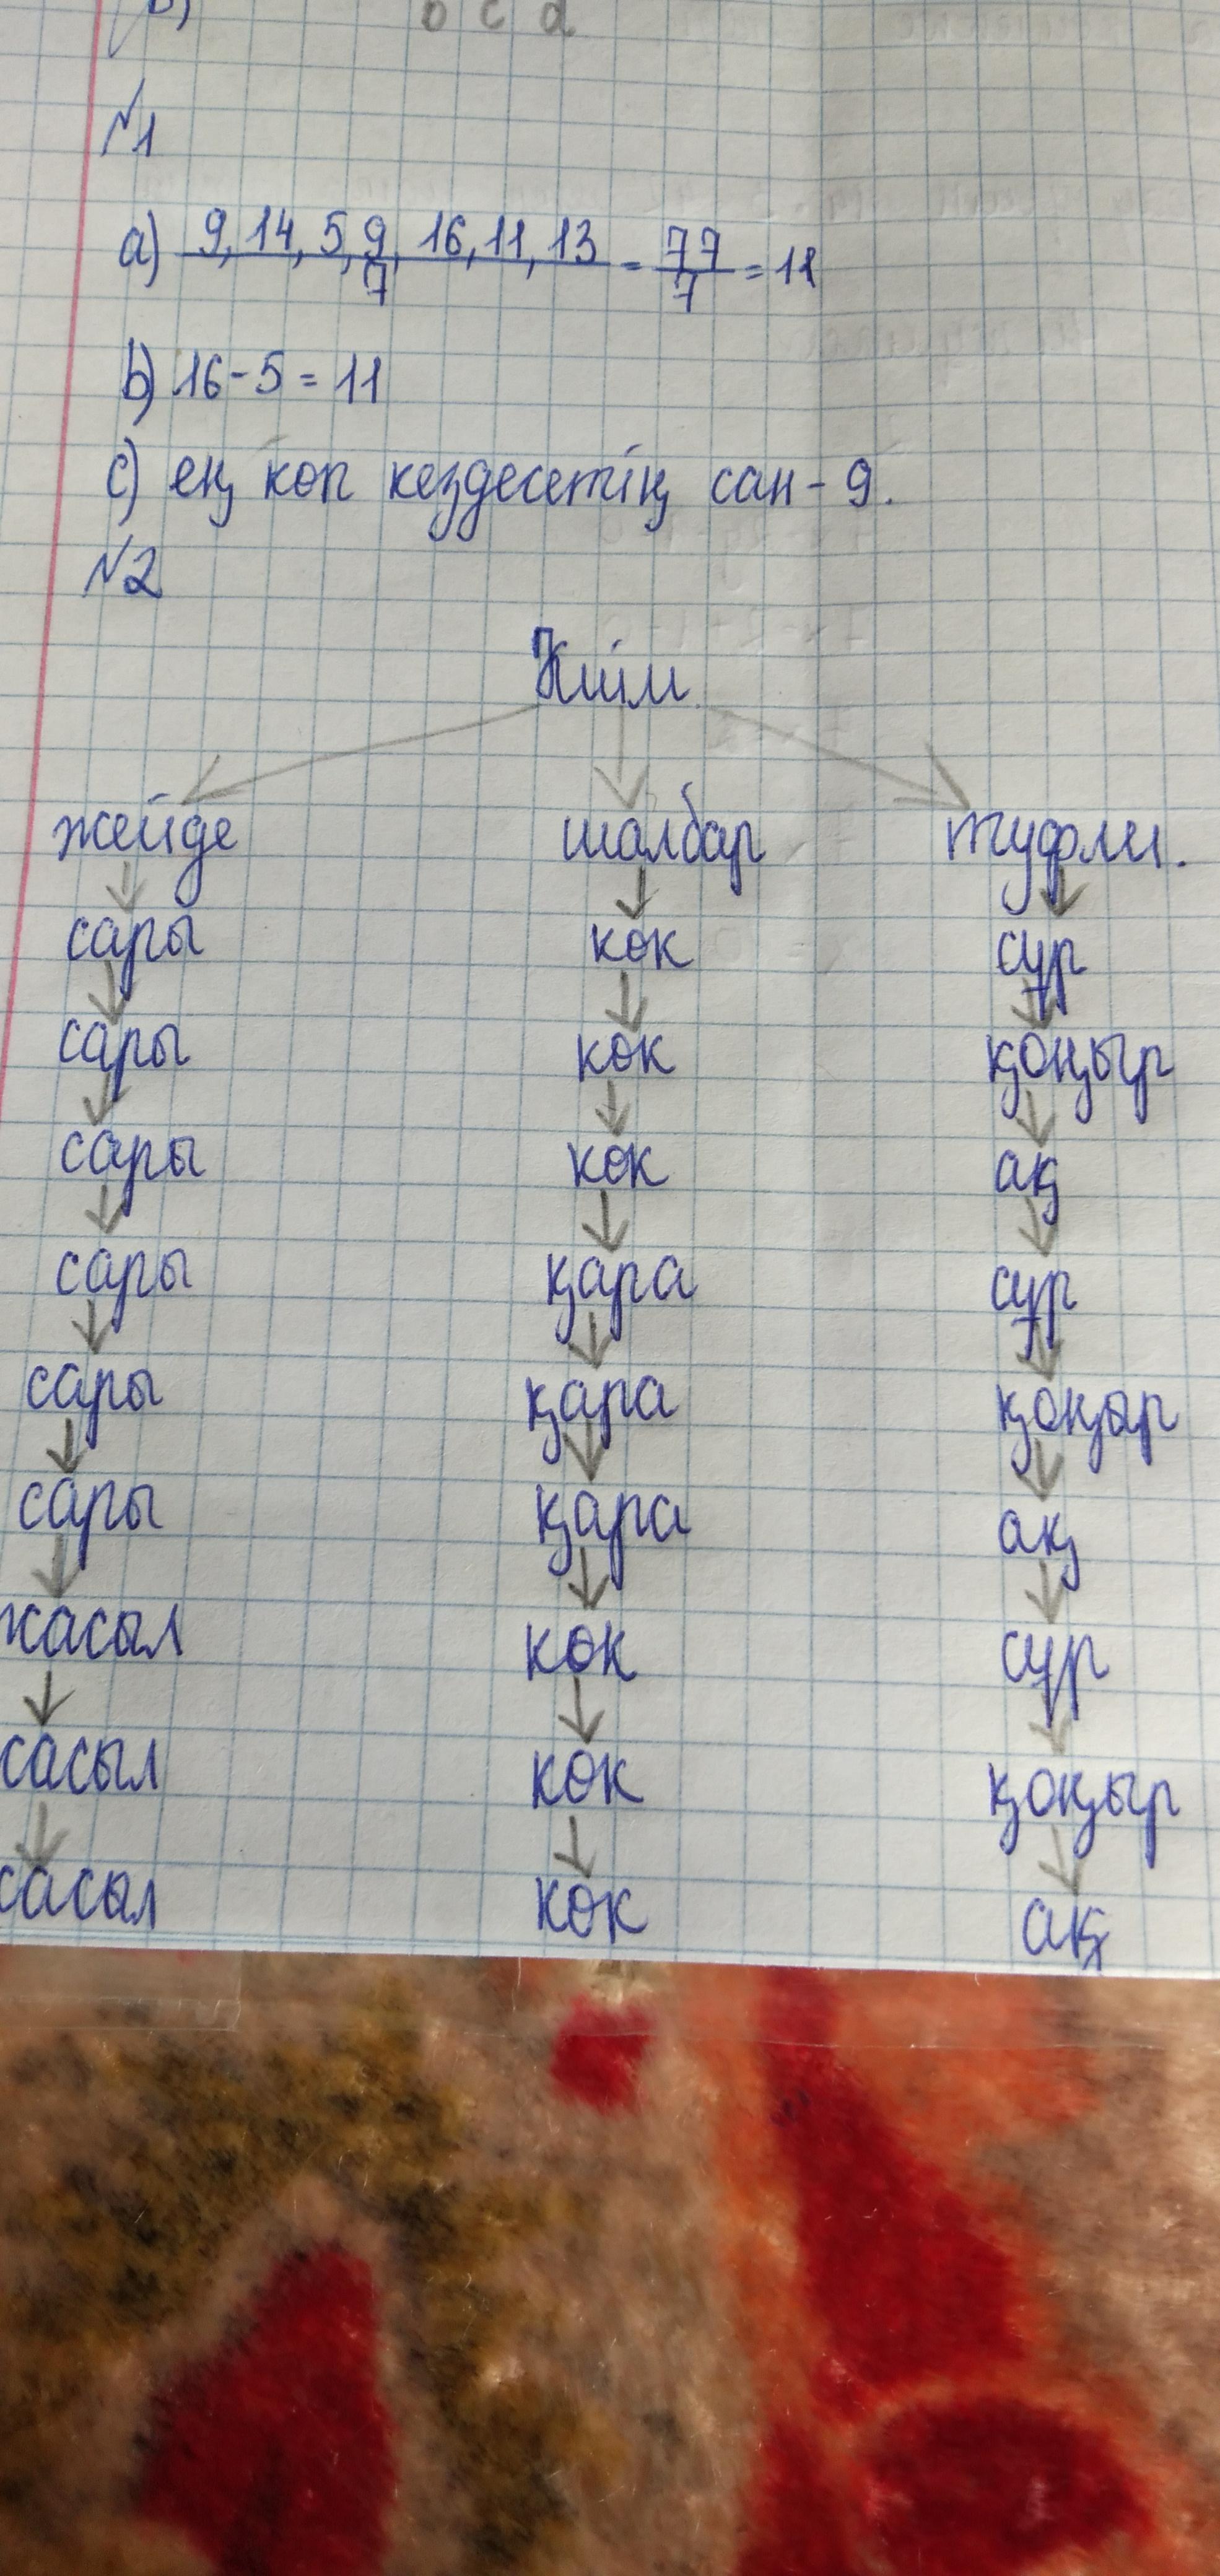 b)
b c d
№1
a) 9, 14, 5, 9, 16, 11, 13 / 7 = 77 / 7 = 11
b) 16 - 5 = 11
c) ең көп кездесетің сан - 9.
№2
Киім
жейде шалбар туфли.
сары көк сұр
сары көк қоңыр
сары көк ақ
сары қара сұр
сары қара қоңыр
сары қара ақ
жасыл көк сұр
сасыл көк қоңыр
сасыл көк ақ